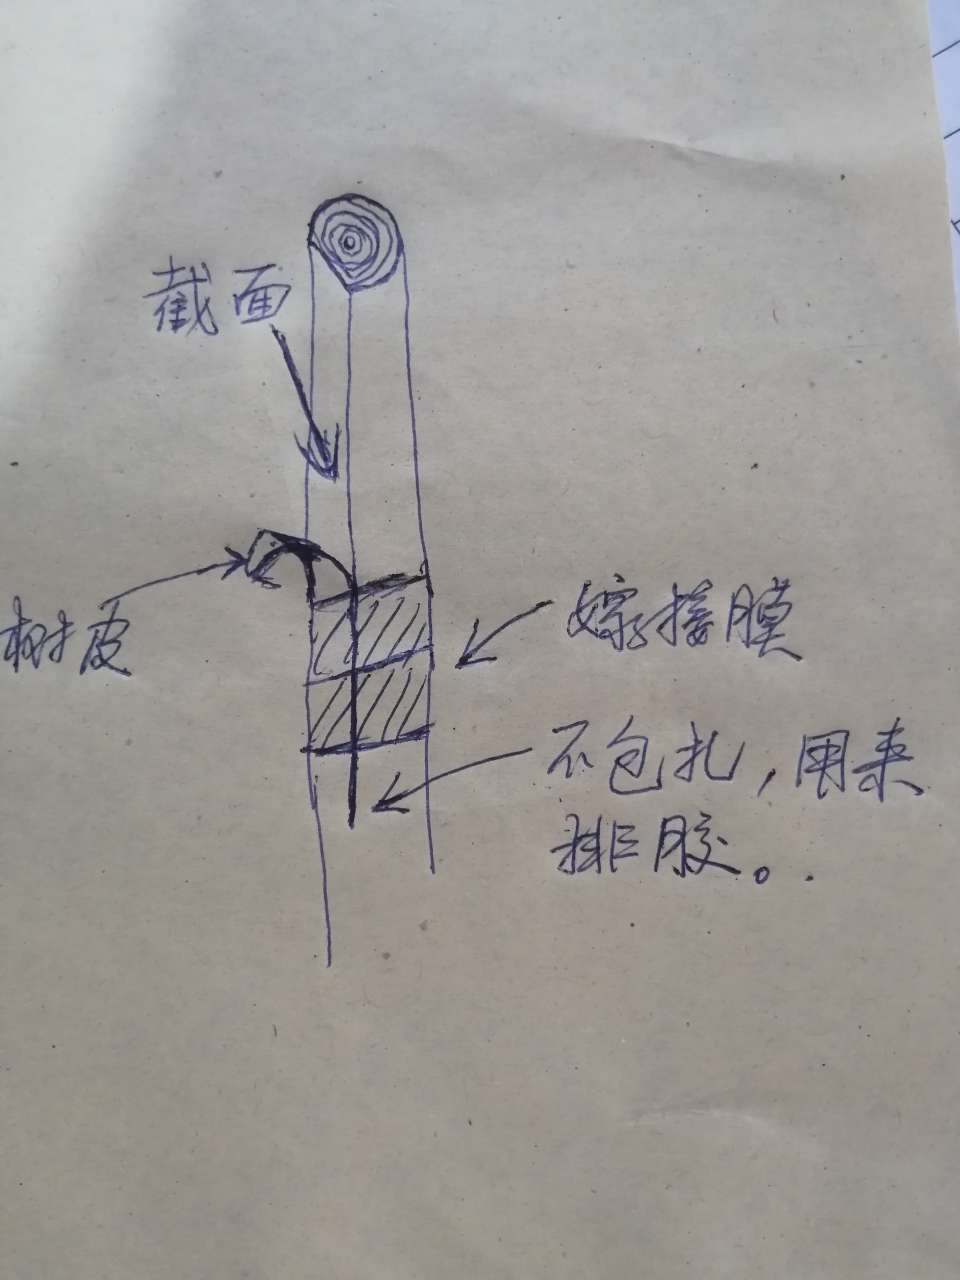 截面
树皮
嫁接膜
不包扎，用来
排胶。.